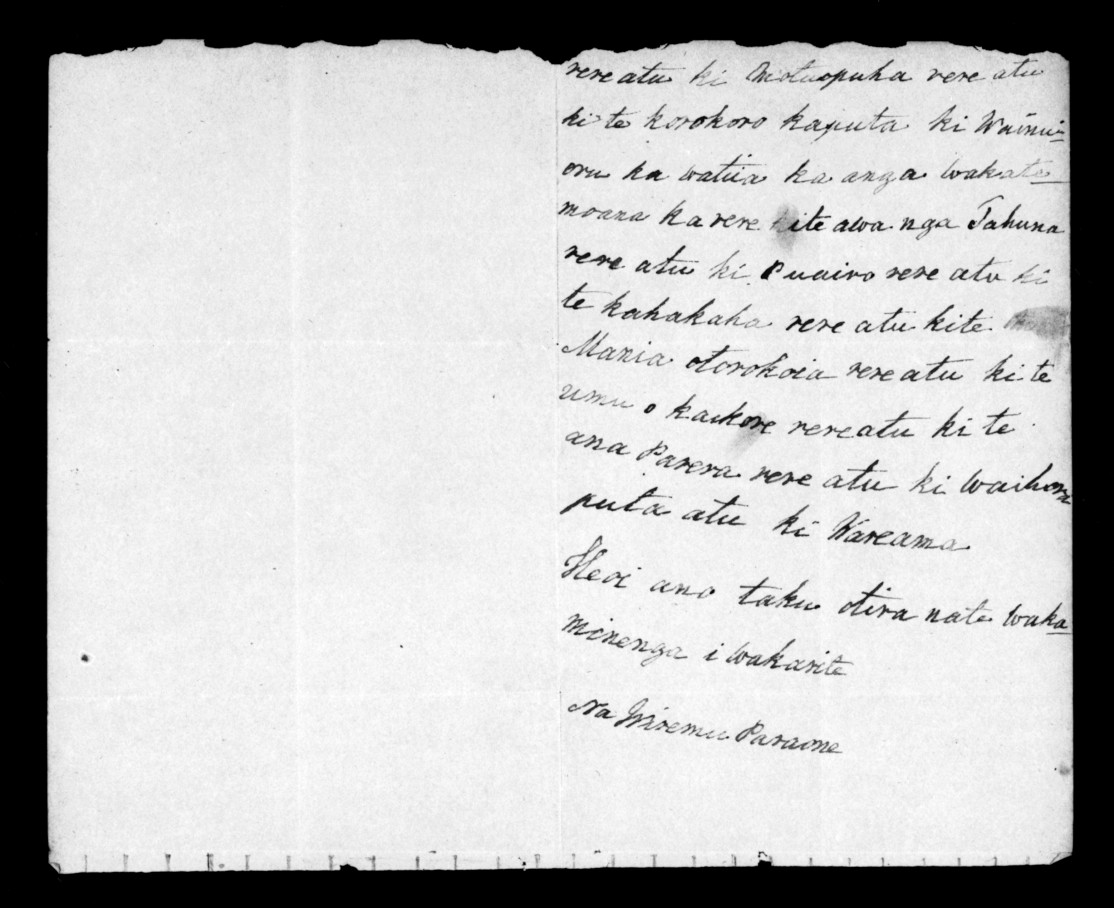 rere atu ki Motuopuha rere atu
ki te korokoro kaputa ki Wainui=
oru ka watiia ka anga wakate=
moana ka rere kite awa nga Tahuna
rere atu ki Puairo rere atu ki
te kahakaha rere atu kite
Mania otorohoia rere atu ki te
umu o kaikore rere atu ki te
ana Parera rere atu ki
puta atu ki Wareama
Heoi ano taku otira nate waka=
minenga i wakarite
Na Wiremu Paraone